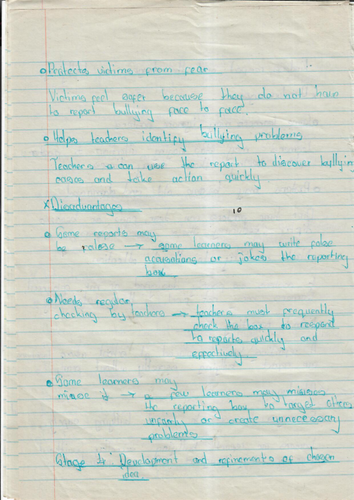 o Protects victims from fear
Victims feel safer because they do not have
to report bullying face to face.
o Helps teachers identify bullying problems
Teachers can use the report to discover bullying
cases and take action quickly
x Disadvantages
10
o Some reports may
be false → some learners may write false
accusations or jokes the reporting
box
o Needs regular
checking by teachers → teachers must frequently
check the box to respond
to reports quickly and
effectively
o Some learners may
misuse it → a few learners may misuse
the reporting box to target others
unfairly or create unnecessary
problems
Stage 4: Development and refinements of chosen
idea